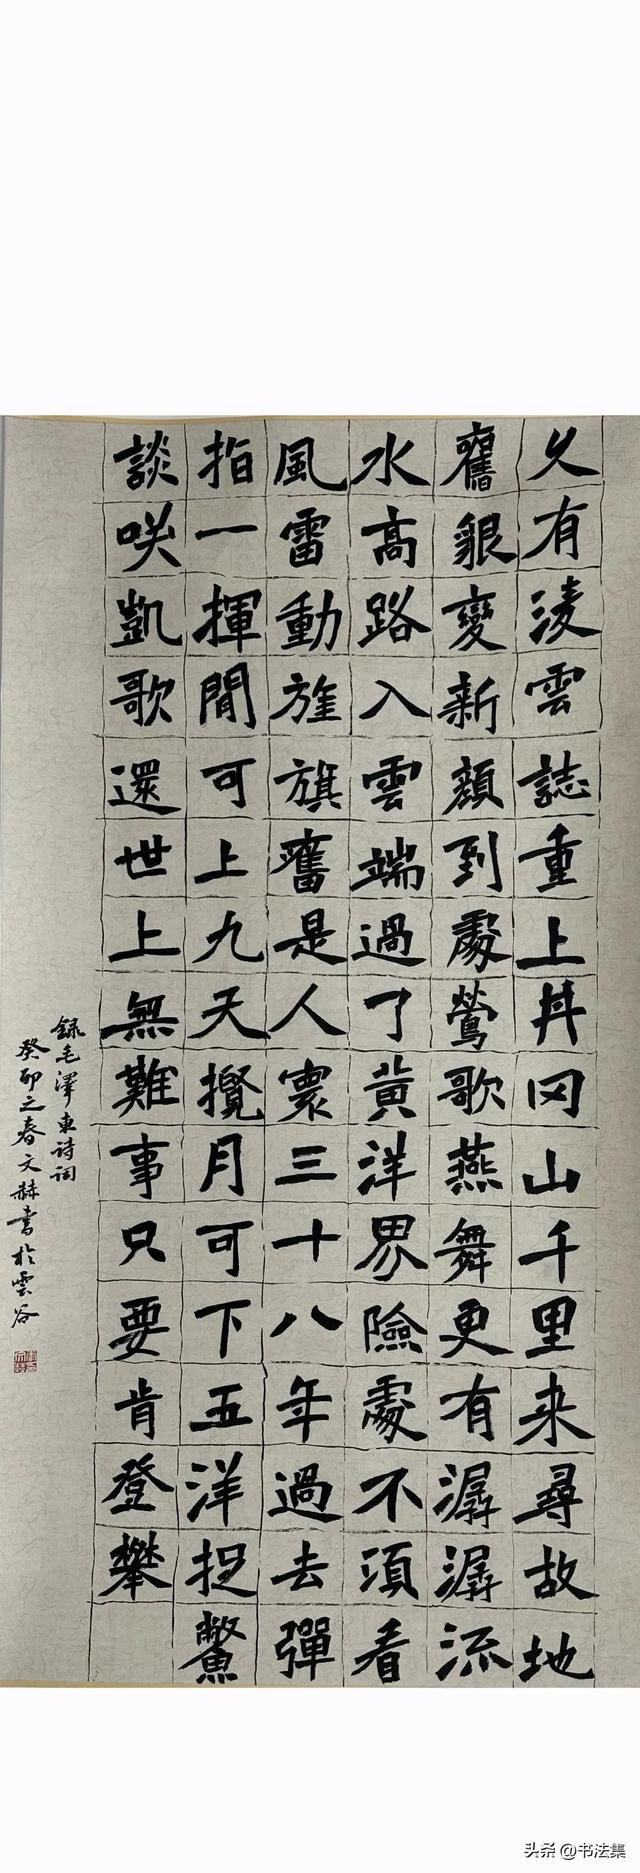 久有淩雲誌重上井冈山千里来尋故地
舊貌變新顔到處鶯歌燕舞更有潺潺流
水高路入雲端過了黄洋界險處不須看
風雷動旌旗奮是人寰三十八年過去彈
指一揮間可上九天攬月可下五洋捉鱉
談咲凱歌還世上無難事只要肯登攀
録毛澤東詩詞
癸卯之春文赫書於雲谷
头条 @书法集